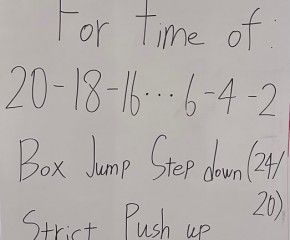 For time of:
20-18-16...6-4-2
Box Jump Step down (24/
20)
Strict Push up